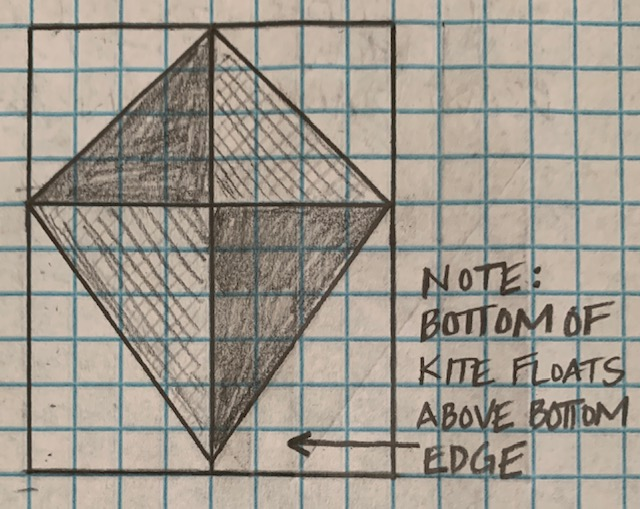 NOTE:
BOTTOM OF
KITE FLOATS
ABOVE BOTTOM
EDGE